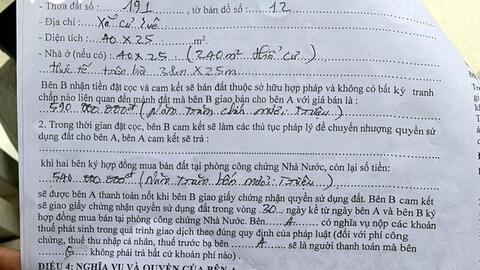 - Thửa đất số : 191 , tờ bản đồ số : 12
- Địa chỉ : Xã cư
- Diện tích : 40 x 25 m2
- Nhà ở (nếu có) : 40 x 25 : (240m² thổ cư)
thực tế 38m x 25m
Bên B nhận tiền đặt cọc và cam kết sẽ bán đất thuộc sở hữu hợp pháp và không có bất kỳ tranh
chấp nào liên quan đến mảnh đất mà bên B giao bán cho bên A với giá bán là :
590 000.000đ (Năm trăm chín mươi Triệu)
2. Trong thời gian đặt cọc, bên B cam kết sẽ làm các thủ tục pháp lý để chuyển nhượng quyền sử
dụng đất cho bên A, bên A cam kết sẽ trả :
khi hai bên ký hợp đồng mua bán đất tại phòng công chứng Nhà Nước, còn lại số tiền:
540 000.000đ (Năm trăm bốn mươi Triệu)
sẽ được bên A thanh toán nốt khi bên B giao giấy chứng nhận quyền sử dụng đất. Bên B cam kết
sẽ giao giấy chứng nhận quyền sử dụng đất trong vòng 30 ngày kể từ ngày bên A và bên B ký
hợp đồng mua bán tại phòng công chứng Nhà Nước. Bên A có nghĩa vụ nộp các khoản
thuế phát sinh trong quá trình giao dịch theo đúng quy định của pháp luật (đối với phí công
chứng, thuế thu nhập cá nhân, thuế trước bạ bên A sẽ là người thanh toán mà bên
B không phải trả bất cứ khoản phí nào) .
ĐIỀU 4: NGHĨA VỤ VÀ QUYỀN CỦA BÊN A